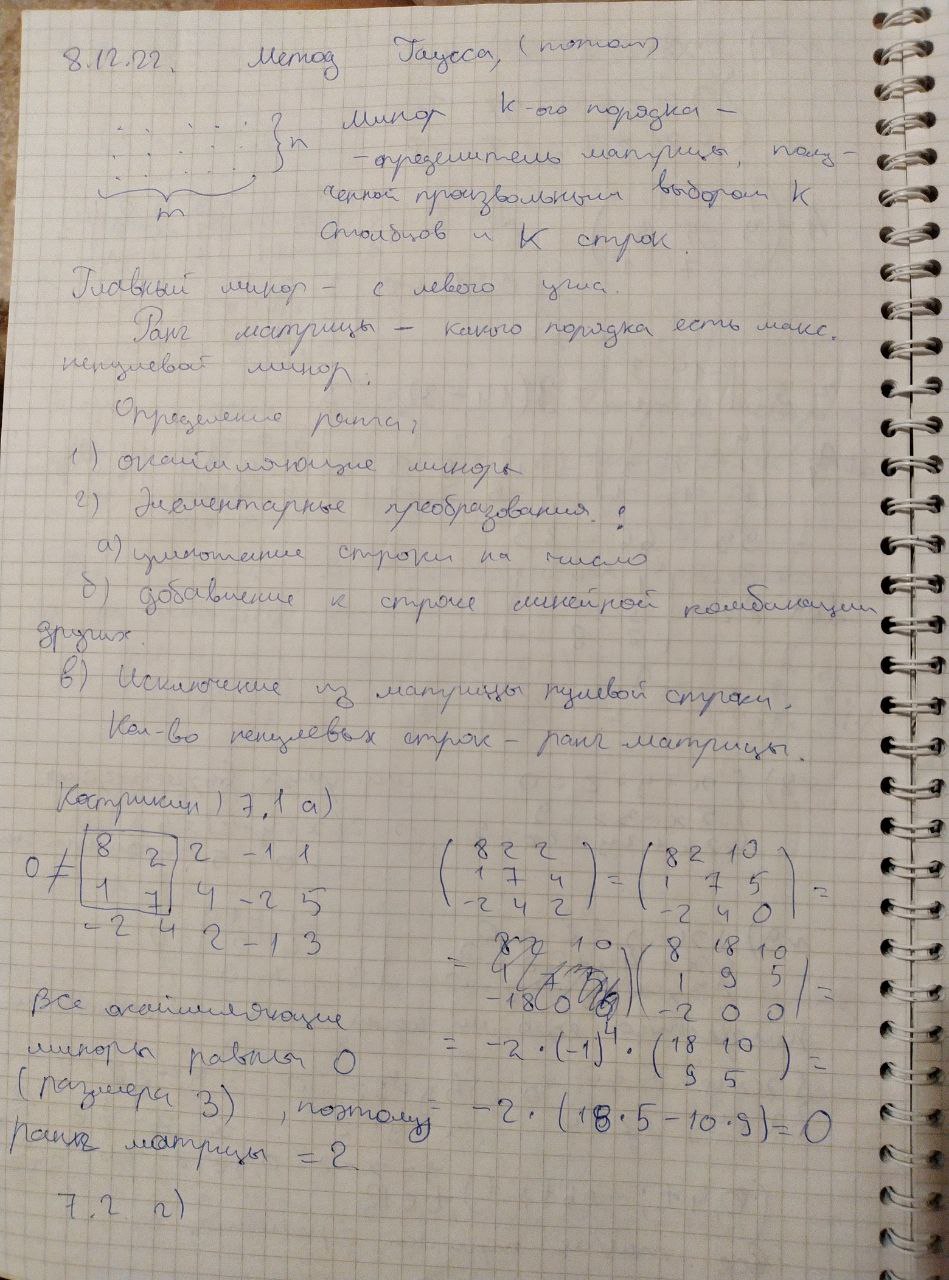 8.12.22. Метод Гаусса, (потом)
} n Минор K-ого порядка –
m
– определитель матрицы, полу-
ченной произвольным выбором K
столбцов и K строк.
Главный минор – с левого угла.
Ранг матрицы – какого порядка есть макс.
ненулевой минор.
Определение ранга:
1) окаймляющие миноры
2) Элементарные преобразования:
а) умножение строки на число
б) добавление к строке линейной комбинации
других.
в) Исключение из матрицы нулевой строки.
Кол-во ненулевых строк – ранг матрицы.
Кострикин 7.1 а)
0 ≠ 8 2 2 -1 1
1 7 4 -2 5
-2 4 2 -1 3
( 8 2 2
1 7 4
-2 4 2 ) = ( 8 2 10
1 7 5
-2 4 0 ) =
= ( 8 18 10
1 9 5
-2 0 0 ) =
= -2 · (-1)^4 · ( 18 10
9 5 ) =
= -2 · (18·5 – 10·9) = 0
Все окаймляющие
миноры равны 0
(размера 3), поэтому
ранг матрицы = 2
7.2 г)